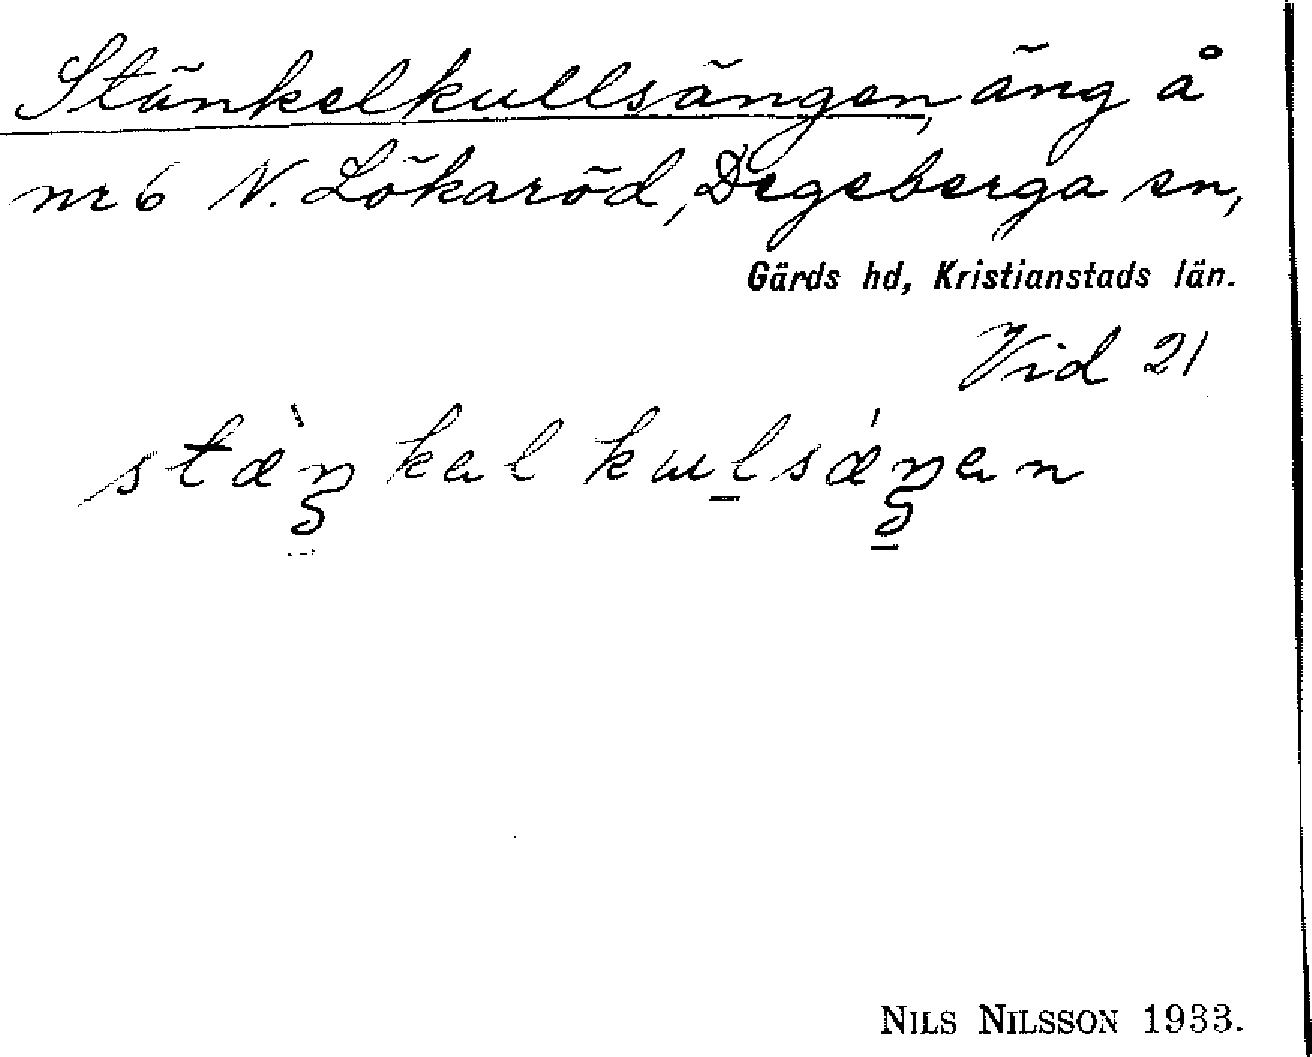 Stänkelkullsängen, äng å
nr 6 N. Lökaröd, Degeberga sn,
Gärds hd, Kristianstads län.
Vid 21
stæ̀ŋkəl kulsǽŋən
NILS NILSSON 1933.